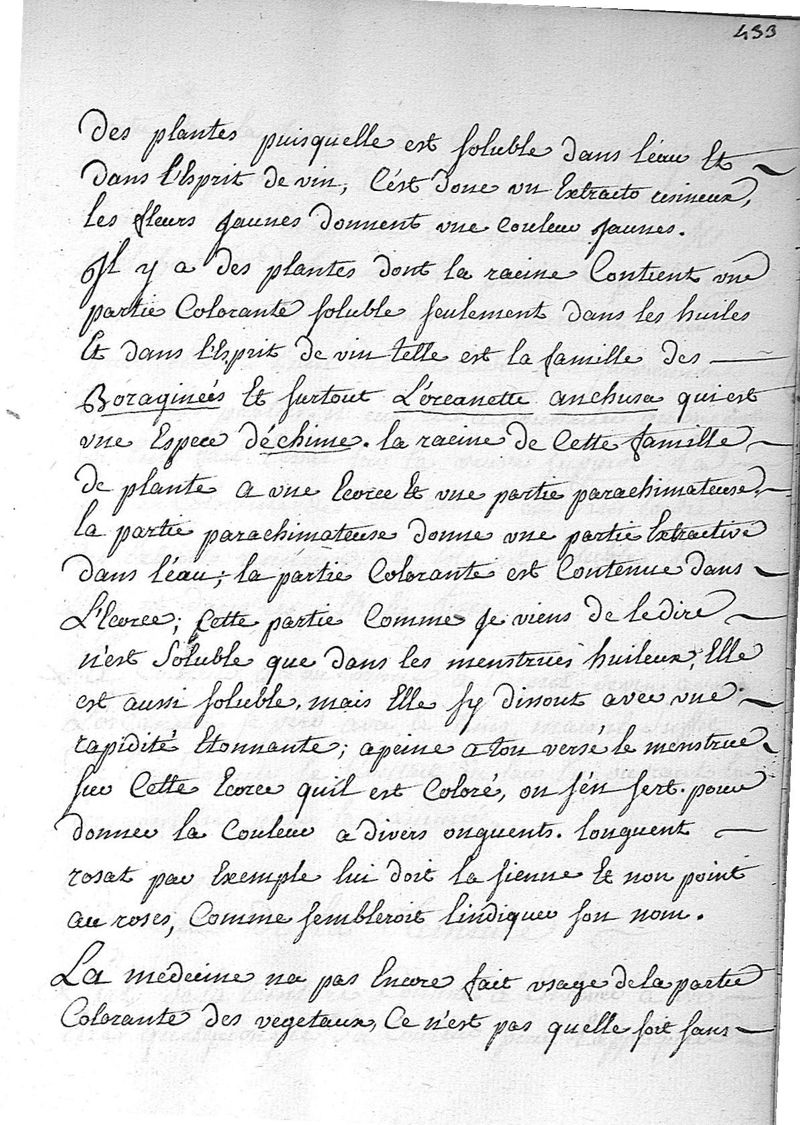 433
des plantes puisquelle est soluble dans l'eau Et
dans l'Esprit de vin, C'est donc un Extracto resineux,
les fleurs jaunes donnent une couleur jaunes.
Il y a des plantes dont la racine Contient une
partie Colorante soluble seulement dans les huiles
Et dans l'Esprit de vin telle est la famille des
Boraginées Et surtout L'orcanette anchusa qui est
une Espece d'échime. la racine de Cette famille
de plante a une Ecorce Et une partie parachimateuse.
la partie parachimateuse donne une partie Extractive
dans l'eau; la partie Colorante est Contenue dans
L'Ecorce; Cette partie Comme je viens de le dire
n'est Soluble que dans les menstrues huileux, Elle
est aussi soluble, mais Elle sy dissout avec une
rapidité Etonnante; apeine a ton versé le menstrue
sur Cette Ecorce quil est Coloré, on s'én sert pour
donner la Couleur a divers onguents. longuent
rosat par Exemple lui doit la sienne Et non point
au roses, Comme sembleroit lindiquer son nom.
La medecine na pas Encore fait usage de la partie
Colorante des vegetaux, Ce n'est pas quelle soit sans